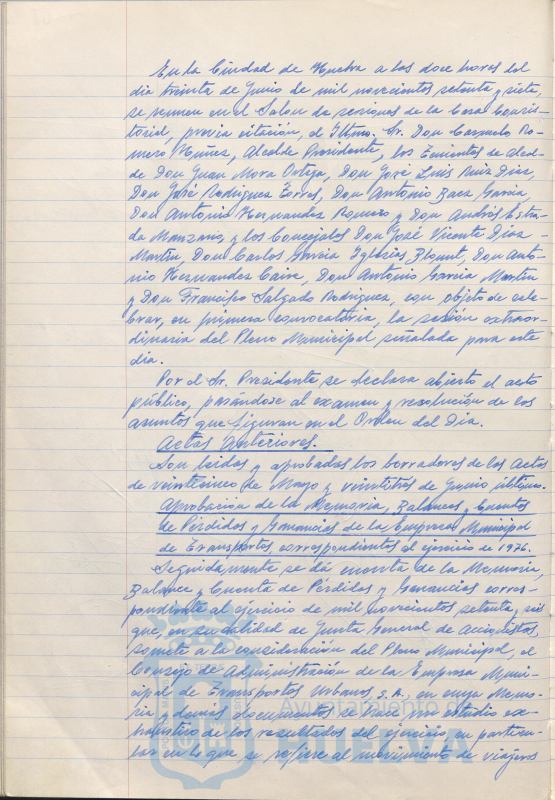 En la Ciudad de Huelva a las doce horas del
dia treinta de Junio de mil novecientos setenta y siete,
se reunen en el Salon de sesiones de la Casa Consis-
torial, previa citación, el Iltmo. Sr. Don Carmelo Ro-
mero Núñez, Alcalde Presidente, los Tenientes de Alcal-
de Don Juan Mora Ortega, Don José Luis Ruiz Díaz,
Don José Rodriguez Torres, Don Antonio Baez Garcia,
Don Antonio Hernandez Romero y Don Andrés Estra-
da Manzano, y los Concejales Don José Vicente Diaz-
Martin, Don Carlos Garcia Iglesias Blount, Don Anto-
nio Hernandez Caire, Don Antonio Garcia Martin
y Don Francisco Salgado Rodriguez, con objeto de cele-
brar, en primera convocatoria, la sesión extraor-
dinaria del Pleno Municipal señalada para este
dia.
Por el Sr. Presidente se declara abierto el acto
público, pasándose al examen y resolución de los
asuntos que figuran en el Orden del Dia.
Actas Anteriores.
Son leidos y aprobados los borradores de las Actas
de veinticinco de Mayo y veintitos de Junio últimos.
Aprobación de la Memoria, Balances y Cuentas
de Pérdidas y Ganancias de la Empresa Municipal
de Transportes, correspondientes al ejercicio de 1976.
Seguidamente se dá cuenta de la Memoria,
Balance y Cuenta de Pérdidas y Ganancias corres-
pondiente al ejercicio de mil novecientos setenta y seis
que, en su calidad de Junta General de Accionistas,
somete a la consideración del Pleno Municipal, el
Consejo de Administración de la Empresa Muni-
cipal de Transportes Urbanos, S.A., en cuya Memo-
ria y demás documentos se hace un estudio ex-
haustivo de los resultados del ejercicio, en particu-
lar en lo que se refiere al movimiento de viajeros
Ayuntamiento de
HUELVA